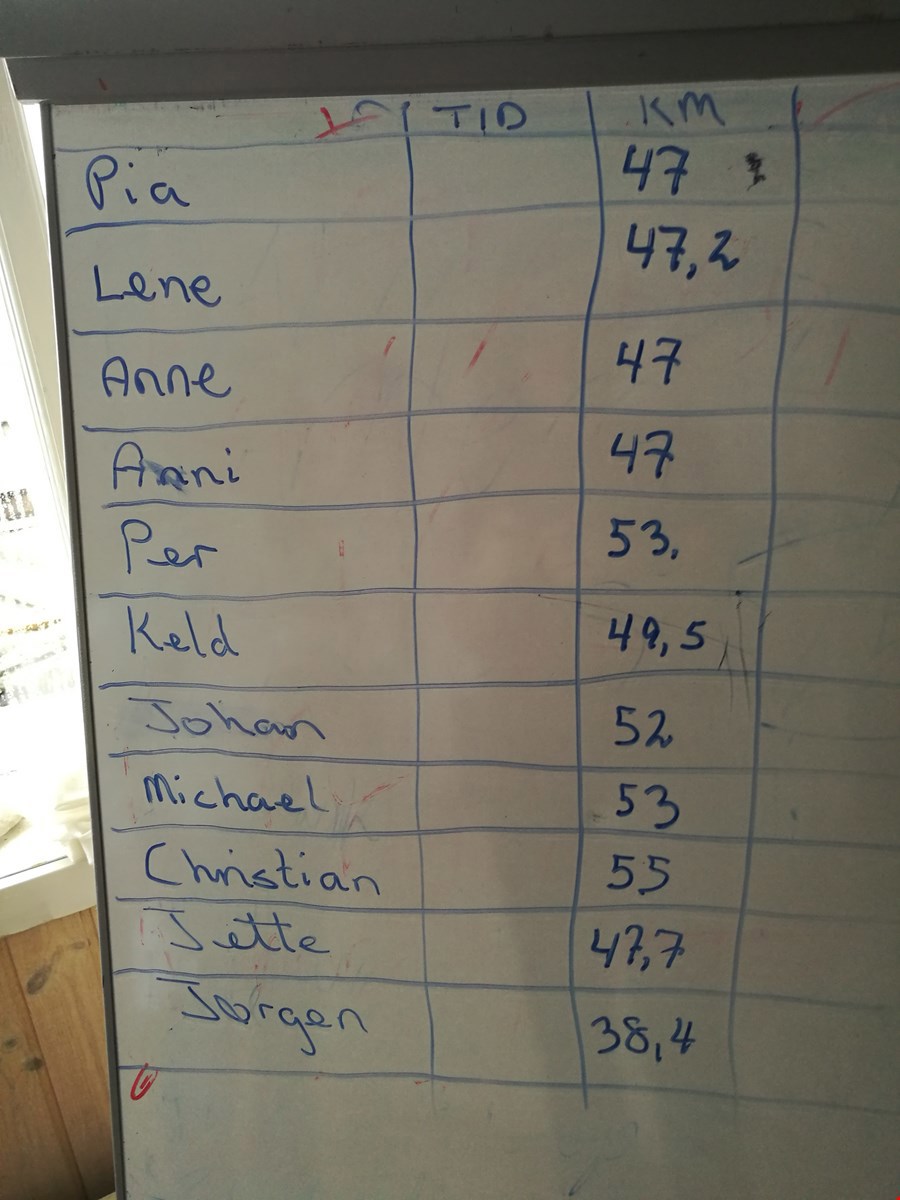 TID KM
Pia 47
Lene 47,2
Anne 47
Anni 47
Per 53.
Keld 49,5
Johan 52
Michael 53
Christian 55
Jette 47,7
Jørgen 38,4